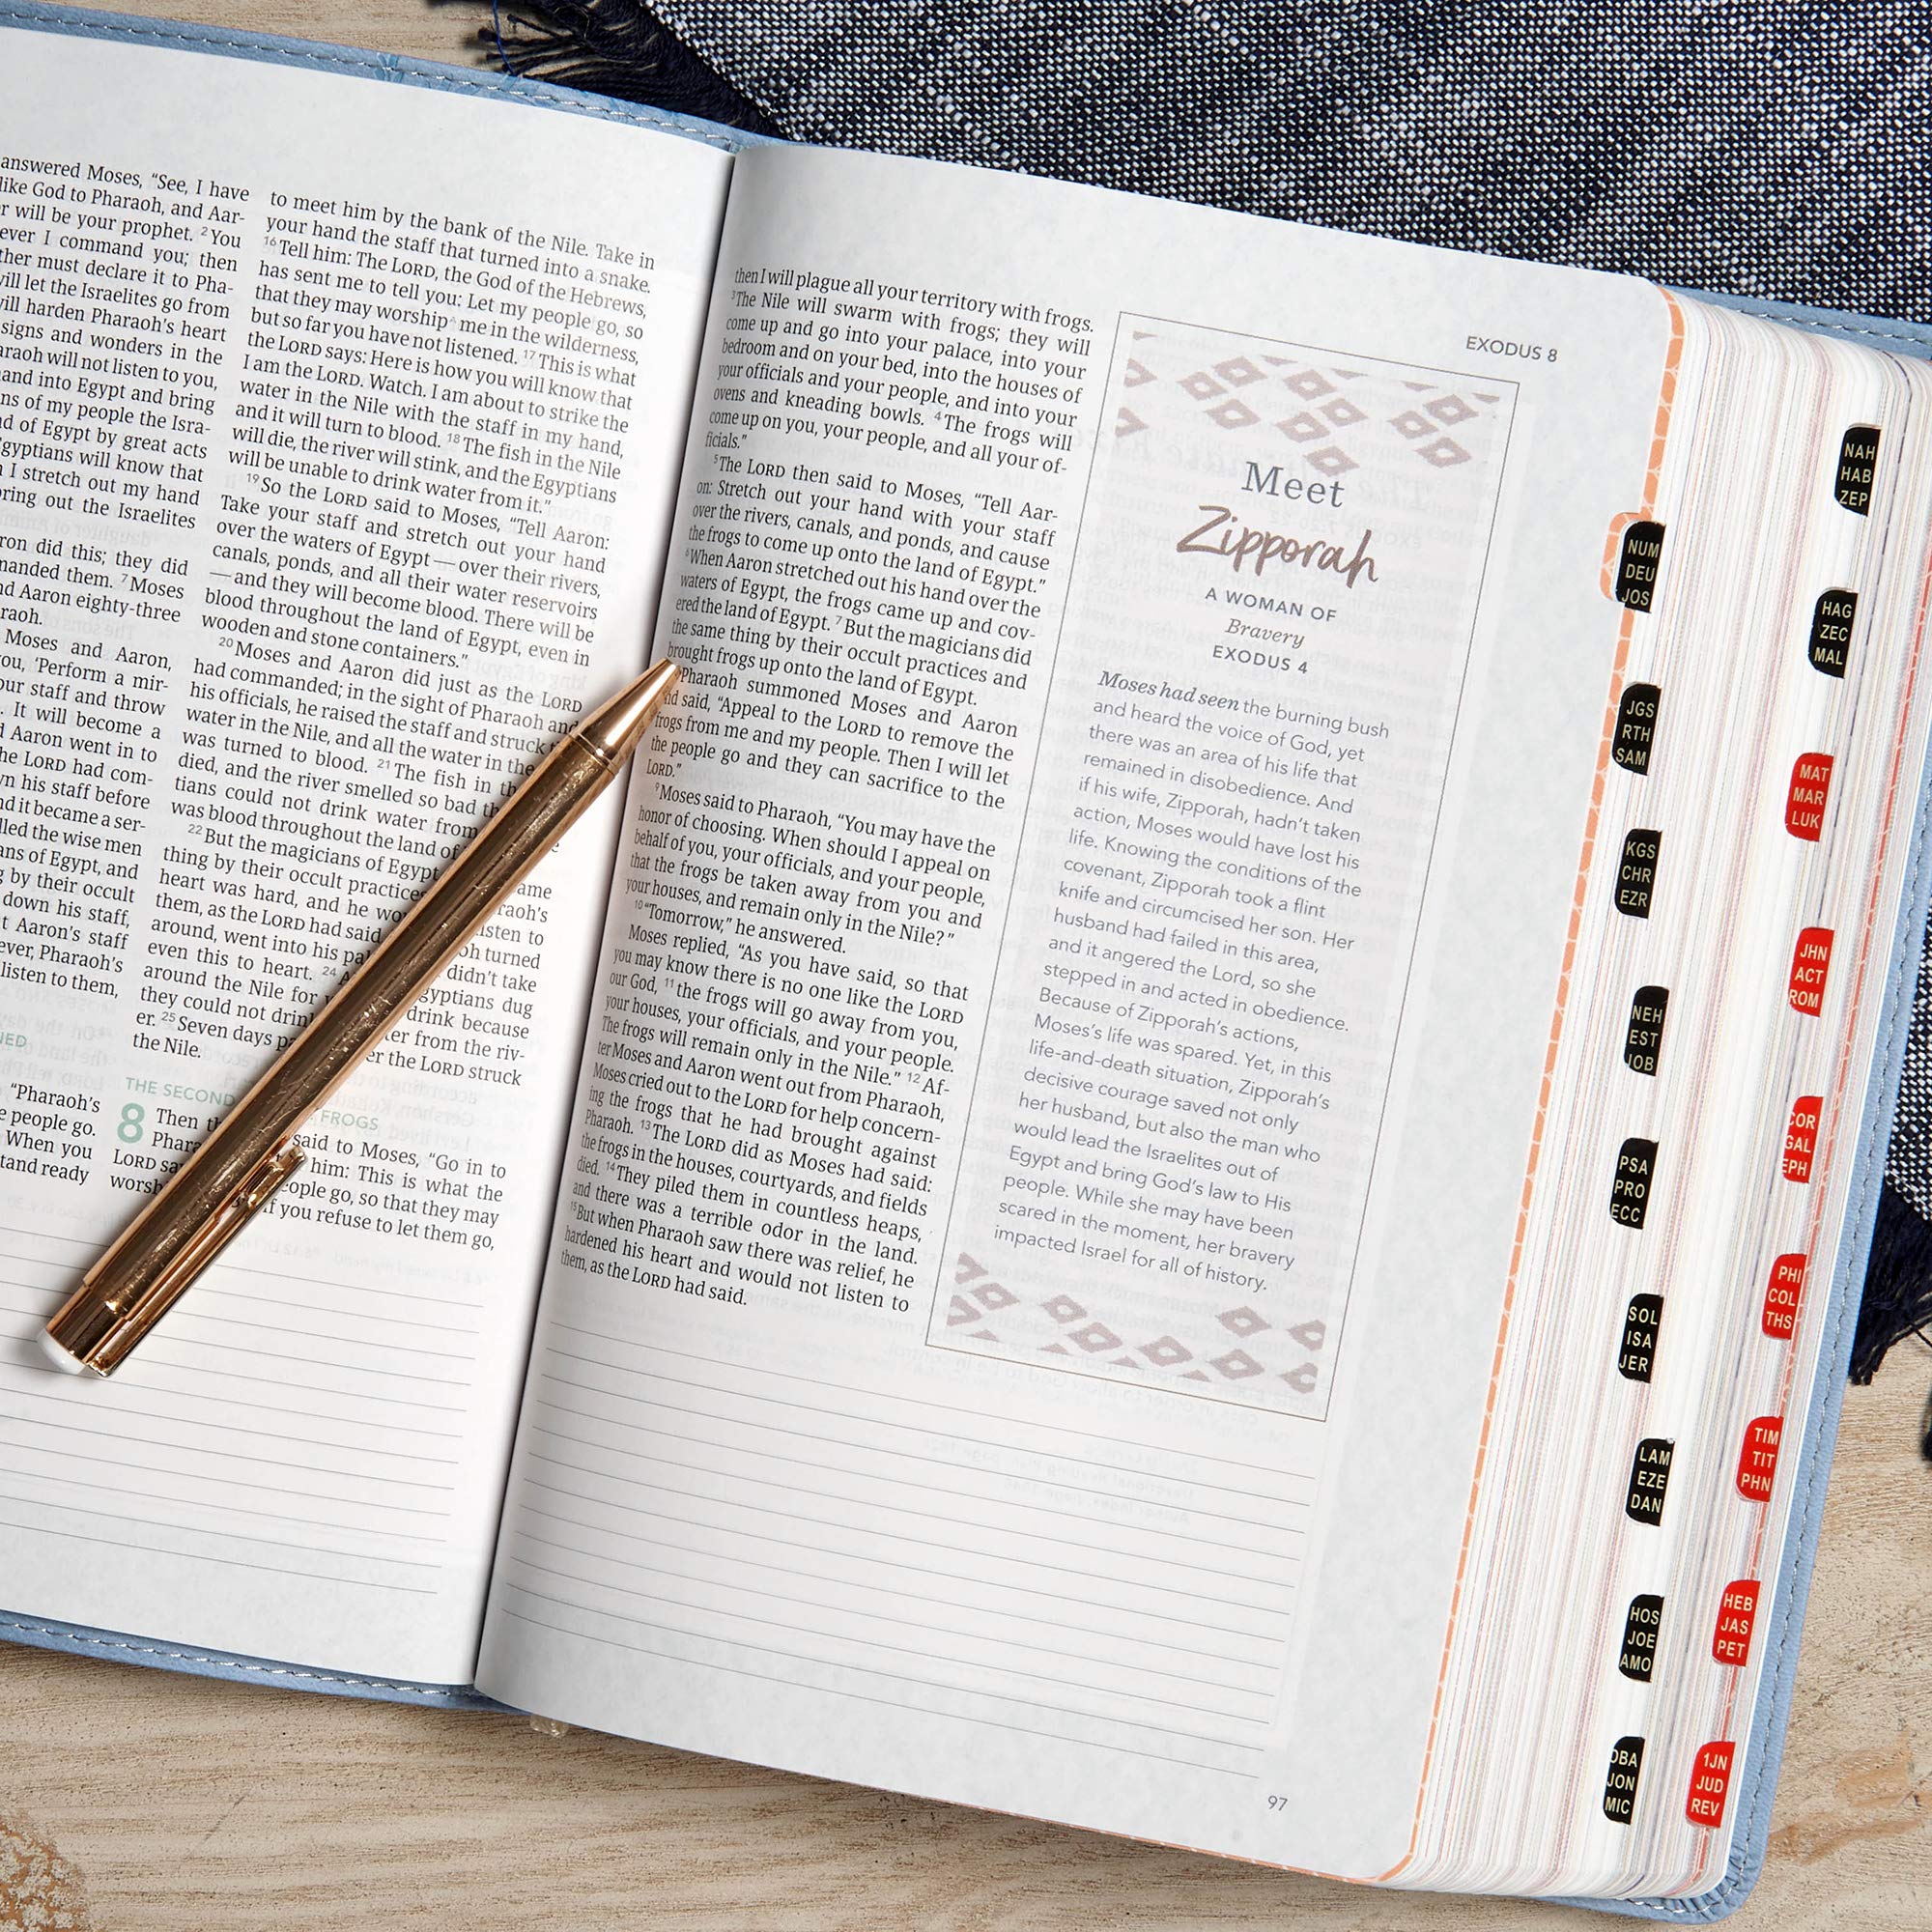 answered Moses, “See, I have
like God to Pharaoh, and Aar-
will be your prophet. 2 You
ever I command you; then
ther must declare it to Pha-
will let the Israelites go from
will harden Pharaoh’s heart
signs and wonders in the
araoh will not listen to you,
and into Egypt and bring
ns of my people the Isra-
d of Egypt by great acts
gyptians will know that
I stretch out my hand
bring out the Israelites
ron did this; they did
manded them. 7 Moses
nd Aaron eighty-three
raoh.
Moses and Aaron,
ou, ‘Perform a mir-
our staff and throw
. It will become a
d Aaron went in to
he LORD had com-
n his staff before
nd it became a ser-
lled the wise men
ans of Egypt, and
g by their occult
down his staff,
t Aaron’s staff
ever, Pharaoh’s
listen to them,
“Pharaoh’s
e people go.
When you
tand ready
to meet him by the bank of the Nile. Take in
your hand the staff that turned into a snake.
16 Tell him: The LORD, the God of the Hebrews,
has sent me to tell you: Let my people go, so
that they may worship me in the wilderness,
but so far you have not listened. 17 This is what
the LORD says: Here is how you will know that
I am the LORD. Watch. I am about to strike the
water in the Nile with the staff in my hand,
and it will turn to blood. 18 The fish in the Nile
will die, the river will stink, and the Egyptians
will be unable to drink water from it.”
19 So the LORD said to Moses, “Tell Aaron:
Take your staff and stretch out your hand
over the waters of Egypt — over their rivers,
canals, ponds, and all their water reservoirs
— and they will become blood. There will be
blood throughout the land of Egypt, even in
wooden and stone containers.”
20 Moses and Aaron did just as the LORD
had commanded; in the sight of Pharaoh and
his officials, he raised the staff and struck
water in the Nile, and all the water in the
was turned to blood. 21 The fish in th
died, and the river smelled so bad th
tians could not drink water from
was blood throughout the land of
22 But the magicians of Egypt ame
thing by their occult practices raoh’s
heart was hard, and he wo isten to
them, as the LORD had said oh turned
around, went into his pal didn’t take
even this to heart. 24 gyptians dug
around the Nile for drink because
they could not drin ter from the riv-
er. 25 Seven days pa er the LORD struck
the Nile.
THE SECOND FROGS
8 Then th said to Moses, “Go in to
Phara him: This is what the
LORD sa eople go, so that they may
worsh f you refuse to let them go,
then I will plague all your territory with frogs.
3 The Nile will swarm with frogs; they will
come up and go into your palace, into your
bedroom and on your bed, into the houses of
your officials and your people, and into your
ovens and kneading bowls. 4 The frogs will
come up on you, your people, and all your of-
ficials.”
5 The LORD then said to Moses, “Tell Aar-
on: Stretch out your hand with your staff
over the rivers, canals, and ponds, and cause
the frogs to come up onto the land of Egypt.”
6 When Aaron stretched out his hand over the
waters of Egypt, the frogs came up and cov-
ered the land of Egypt. 7 But the magicians did
the same thing by their occult practices and
brought frogs up onto the land of Egypt.
8 Pharaoh summoned Moses and Aaron
and said, “Appeal to the LORD to remove the
frogs from me and my people. Then I will let
the people go and they can sacrifice to the
LORD.”
9 Moses said to Pharaoh, “You may have the
honor of choosing. When should I appeal on
behalf of you, your officials, and your people,
that the frogs be taken away from you and
your houses, and remain only in the Nile?”
10 “Tomorrow,” he answered.
Moses replied, “As you have said, so that
you may know there is no one like the LORD
our God, 11 the frogs will go away from you,
your houses, your officials, and your people.
The frogs will remain only in the Nile.” 12 Af-
ter Moses and Aaron went out from Pharaoh,
Moses cried out to the LORD for help concern-
ing the frogs that he had brought against
Pharaoh. 13 The LORD did as Moses had said:
the frogs in the houses, courtyards, and fields
died. 14 They piled them in countless heaps,
and there was a terrible odor in the land.
15 But when Pharaoh saw there was relief, he
hardened his heart and would not listen to
them, as the LORD had said.
EXODUS 8
Meet
Zipporah
A WOMAN OF
Bravery
EXODUS 4
Moses had seen the burning bush
and heard the voice of God, yet
there was an area of his life that
remained in disobedience. And
if his wife, Zipporah, hadn’t taken
action, Moses would have lost his
life. Knowing the conditions of the
covenant, Zipporah took a flint
knife and circumcised her son. Her
husband had failed in this area,
and it angered the Lord, so she
stepped in and acted in obedience.
Because of Zipporah’s actions,
Moses’s life was spared. Yet, in this
life-and-death situation, Zipporah’s
decisive courage saved not only
her husband, but also the man who
would lead the Israelites out of
Egypt and bring God’s law to His
people. While she may have been
scared in the moment, her bravery
impacted Israel for all of history.
97
NUM
DEU
JOS
JGS
RTH
SAM
KGS
CHR
EZR
NEH
EST
JOB
PSA
PRO
ECC
SOL
ISA
JER
LAM
EZE
DAN
HOS
JOE
AMO
OBA
JON
MIC
NAH
HAB
ZEP
HAG
ZEC
MAL
MAT
MAR
LUK
JHN
ACT
ROM
COR
GAL
EPH
PHI
COL
THS
TIM
TIT
PHN
HEB
JAS
PET
1JN
JUD
REV